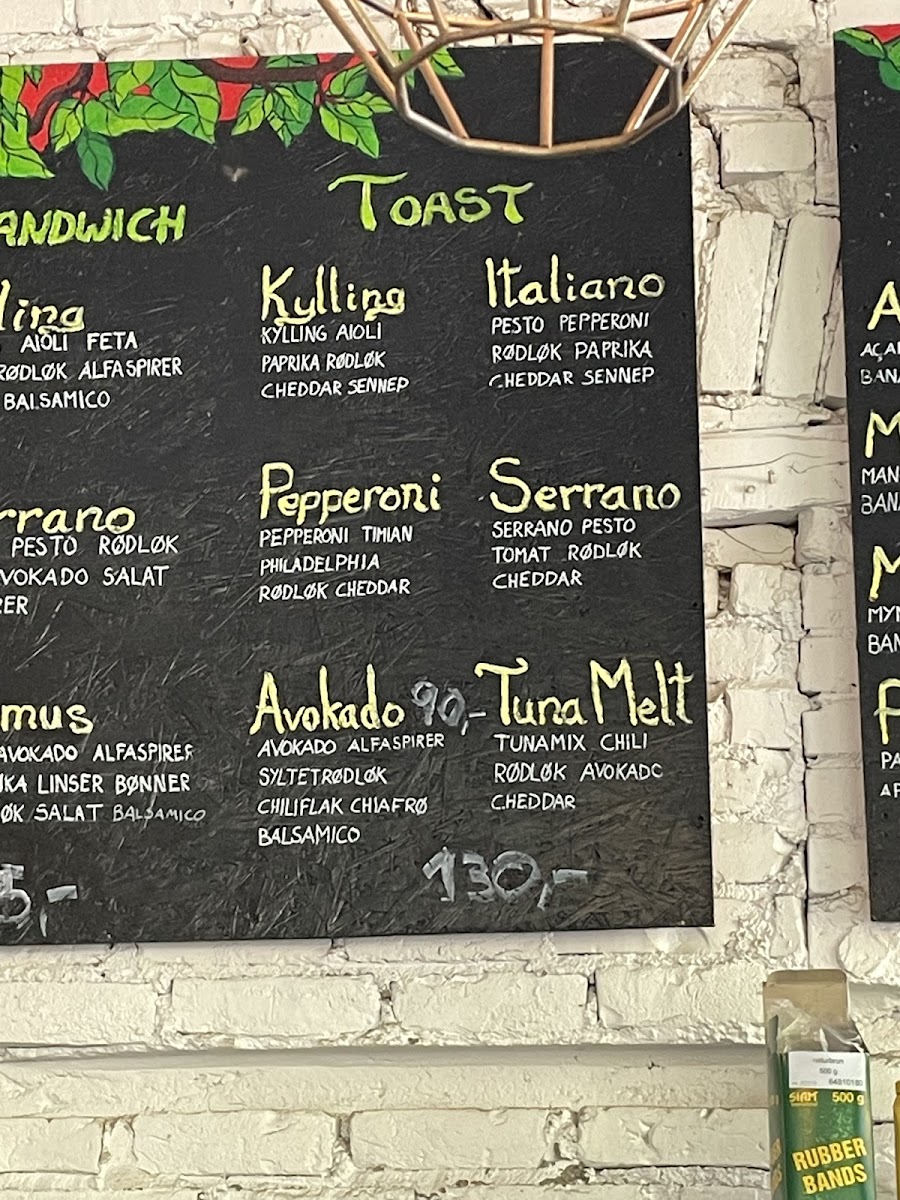 SANDWICH
AIOLI FETA
RØDLØK ALFASPIRER
BALSAMICO
PESTO RØDLØK
AVOKADO SALAT
AVOKADO ALFASPIRER
LINSER BØNNER
SALAT BALSAMICO
TOAST
Kylling
KYLLING AIOLI
PAPRIKA RØDLØK
CHEDDAR SENNEP
Italiano
PESTO PEPPERONI
RØDLØK PAPRIKA
CHEDDAR SENNEP
Pepperoni
PEPPERONI TIMIAN
PHILADELPHIA
RØDLØK CHEDDAR
Serrano
SERRANO PESTO
TOMAT RØDLØK
CHEDDAR
Avokado 90,-
AVOKADO ALFASPIRER
SYLTETRØDLØK
CHILIFLAK CHIAFRØ
BALSAMICO
Tuna Melt
TUNAMIX CHILI
RØDLØK AVOKADO
CHEDDAR
130,-
500 g
64810180
SIAM 500 g
RUBBER
BANDS